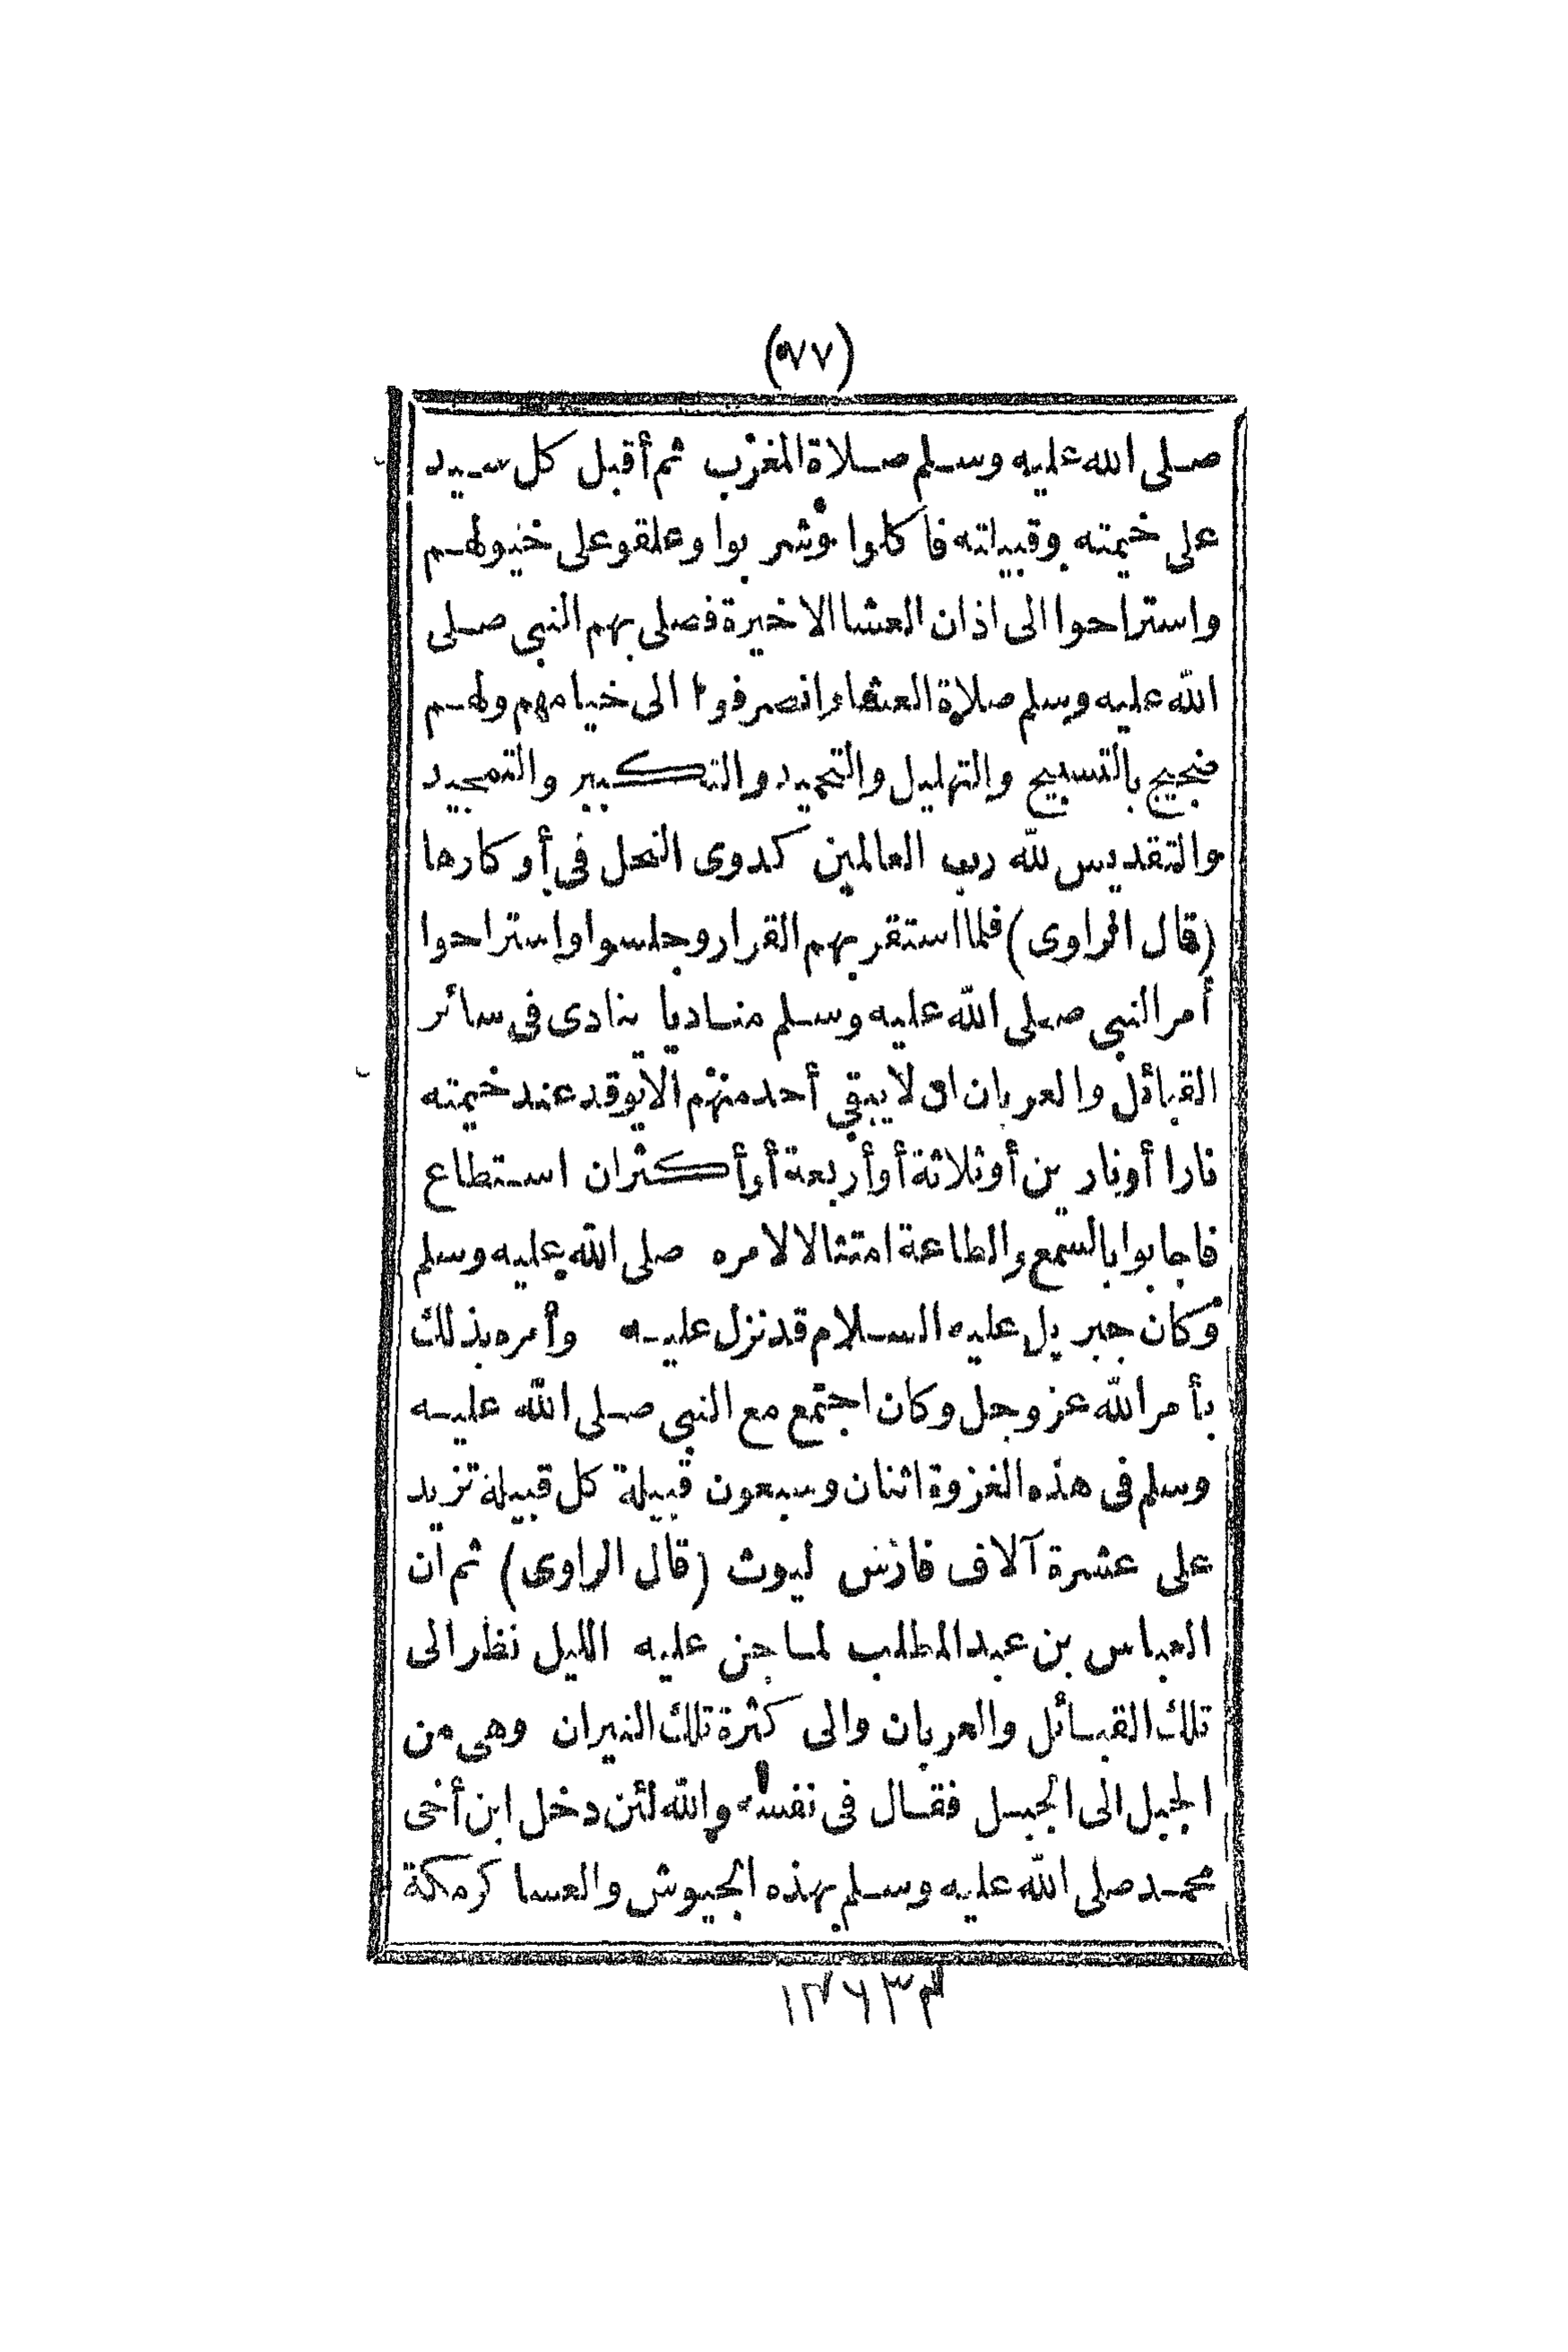 (٧٧)
صلى الله عليه وسلم صلاة المغرب ثم أقبل كل سيد
على خيمته وقبيلته فاكلوا وشربوا وعلقو على خيولهم
واستراحوا الى اذان العشا الاخيرة فصلى بهم النبي صلى
الله عليه وسلم صلاة العشاء وانصرفوا الى خيامهم ولهم
ضجيج بالتسبيح والتهليل والتحميد والتكبير والتمجيد
والتقديس لله رب العالمين كدوى النحل فى أوكارها
(قال الراوى) فلما استقر بهم القرار وجلسوا واستراحوا
أمر النبي صلى الله عليه وسلم مناديا ينادى فى سائر
القبائل والعربان ان لا يبقي أحد منهم الا يوقد عند خيمته
نارا أونارين أوثلاثة أوأربعة أوأكثران استطاع
فاجابوا بالسمع والطاعة امتثالا لامره صلى الله عليه وسلم
وكان جبريل عليه السلام قد نزل عليه وأمره بذلك
بأمر الله عز وجل وكان اجتمع مع النبي صلى الله عليه
وسلم فى هذه الغزوة اثنان وسبعون قبيلة كل قبيلة تزيد
على عشرة آلاف فارس ليوث (قال الراوى) ثم ان
العباس بن عبد المطلب لما جن عليه الليل نظر الى
تلك القبائل والعربان والى كثرة تلك النيران وهى من
الجبل الى الجبل فقال فى نفسه والله لئن دخل ابن أخى
محمد صلى الله عليه وسلم بهذه الجيوش والعساكر مكة